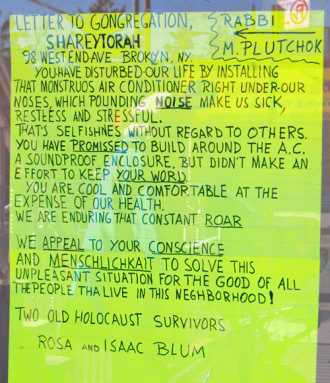 LETTER TO GONGREGATION,
SHAREYTORAH
RABBI
M. PLUTCHOK
98 WESTEND AVE. BROKLYN, NY.
YOU HAVE DISTURBED OUR LIFE BY INSTALLING
THAT MONSTRUOS AIR CONDITIONER RIGHT UNDER-OUR
NOSES, WHICH POUNDING NOISE MAKE US SICK,
RESTLESS AND STRESSFUL.
THAT'S SELFISHNES WITHOUT REGARD TO OTHERS.
YOU HAVE PROMISSED TO BUILD AROUND THE A.C.
A SOUNDPROOF ENCLOSURE, BUT DIDN'T MAKE AN
EFFORT TO KEEP YOUR WORD.
YOU ARE COOL AND COMFORTABLE AT THE
EXPENSE OF OUR HEALTH.
WE ARE ENDURING THAT CONSTANT ROAR
WE APPEAL TO YOUR CONSCIENCE
AND MENSCHLICHKAIT TO SOLVE THIS
UNPLEASANT SITUATION FOR THE GOOD OF ALL
THE PEOPLE THA LIVE IN THIS NEGHBORHOOD!
TWO OLD HOLOCAUST SURVIVORS
ROSA AND ISAAC BLUM